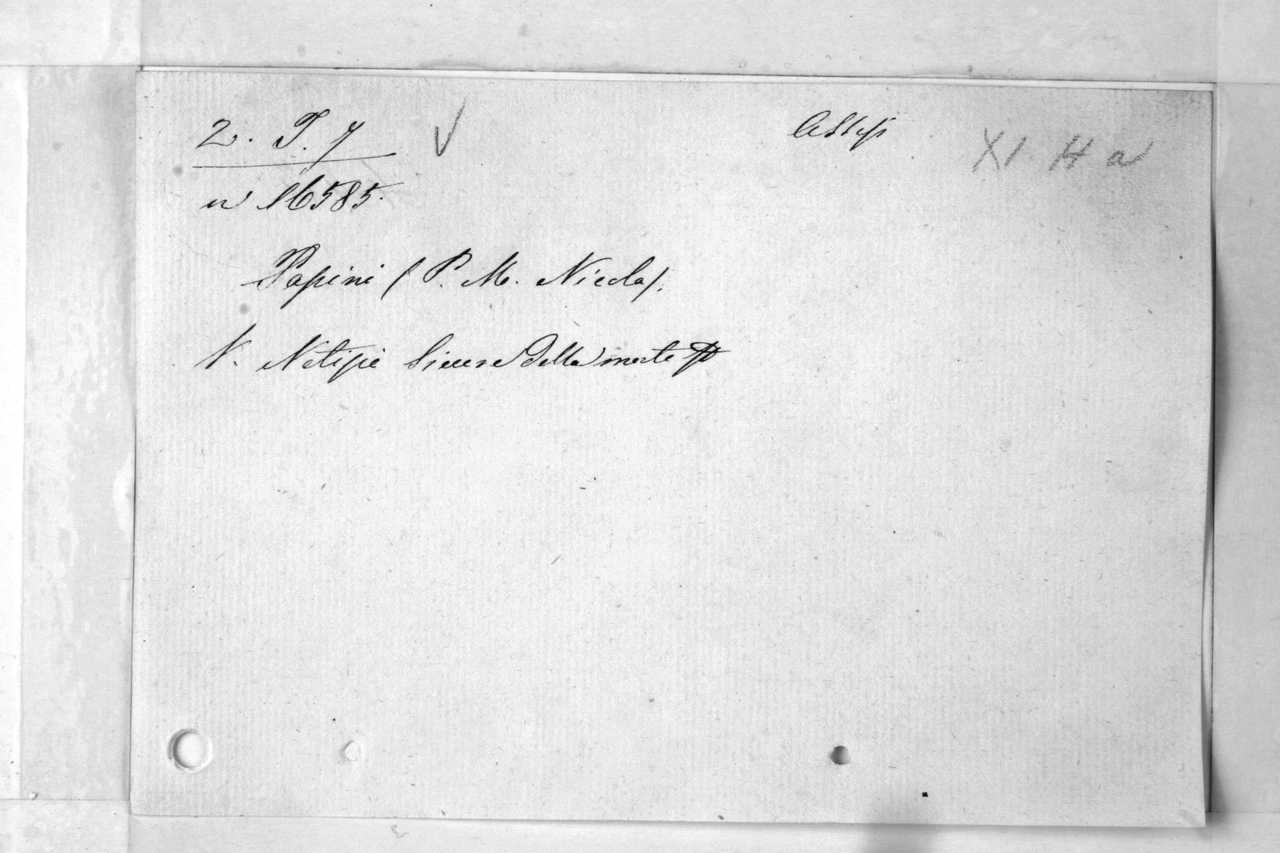 2. T. 7 Assisi XI H a
n 16585.
Papini (P. M. Nicola).
V. Notizie Sicure della morte